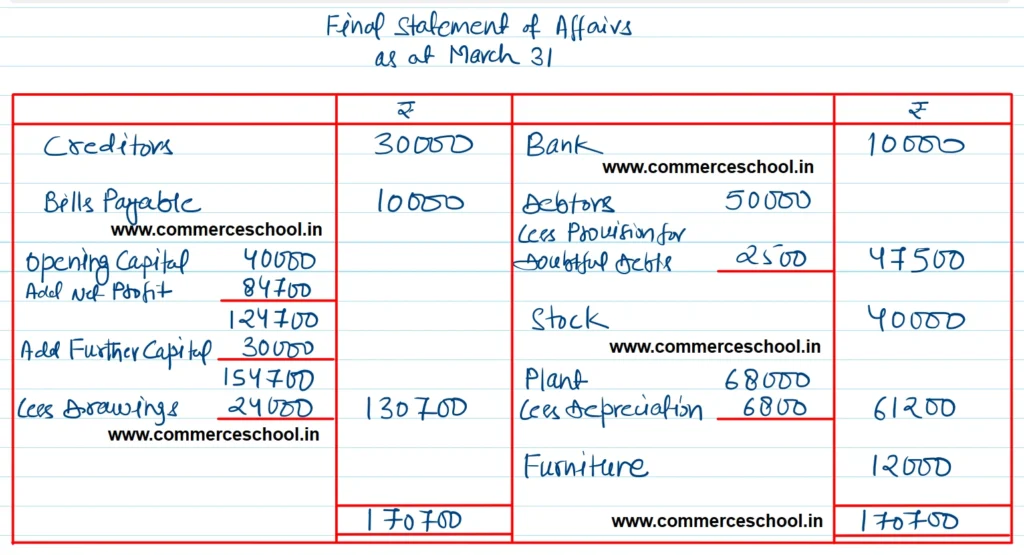 Final Statement of Affairs
as at March 31
₹ ₹
Creditors 30000 Bank 10000
www.commerceschool.in
Bills Payable 10000 Debtors 50000
www.commerceschool.in
Less Provision for
Opening Capital 40000 Doubtful Debts 2500 47500
Add Net Profit 84700
124700 Stock 40000
Add Further Capital 30000 www.commerceschool.in
154700 Plant 68000
Less Drawings 24000 130700 Less Depreciation 6800 61200
www.commerceschool.in
Furniture 12000
170700 www.commerceschool.in 170700